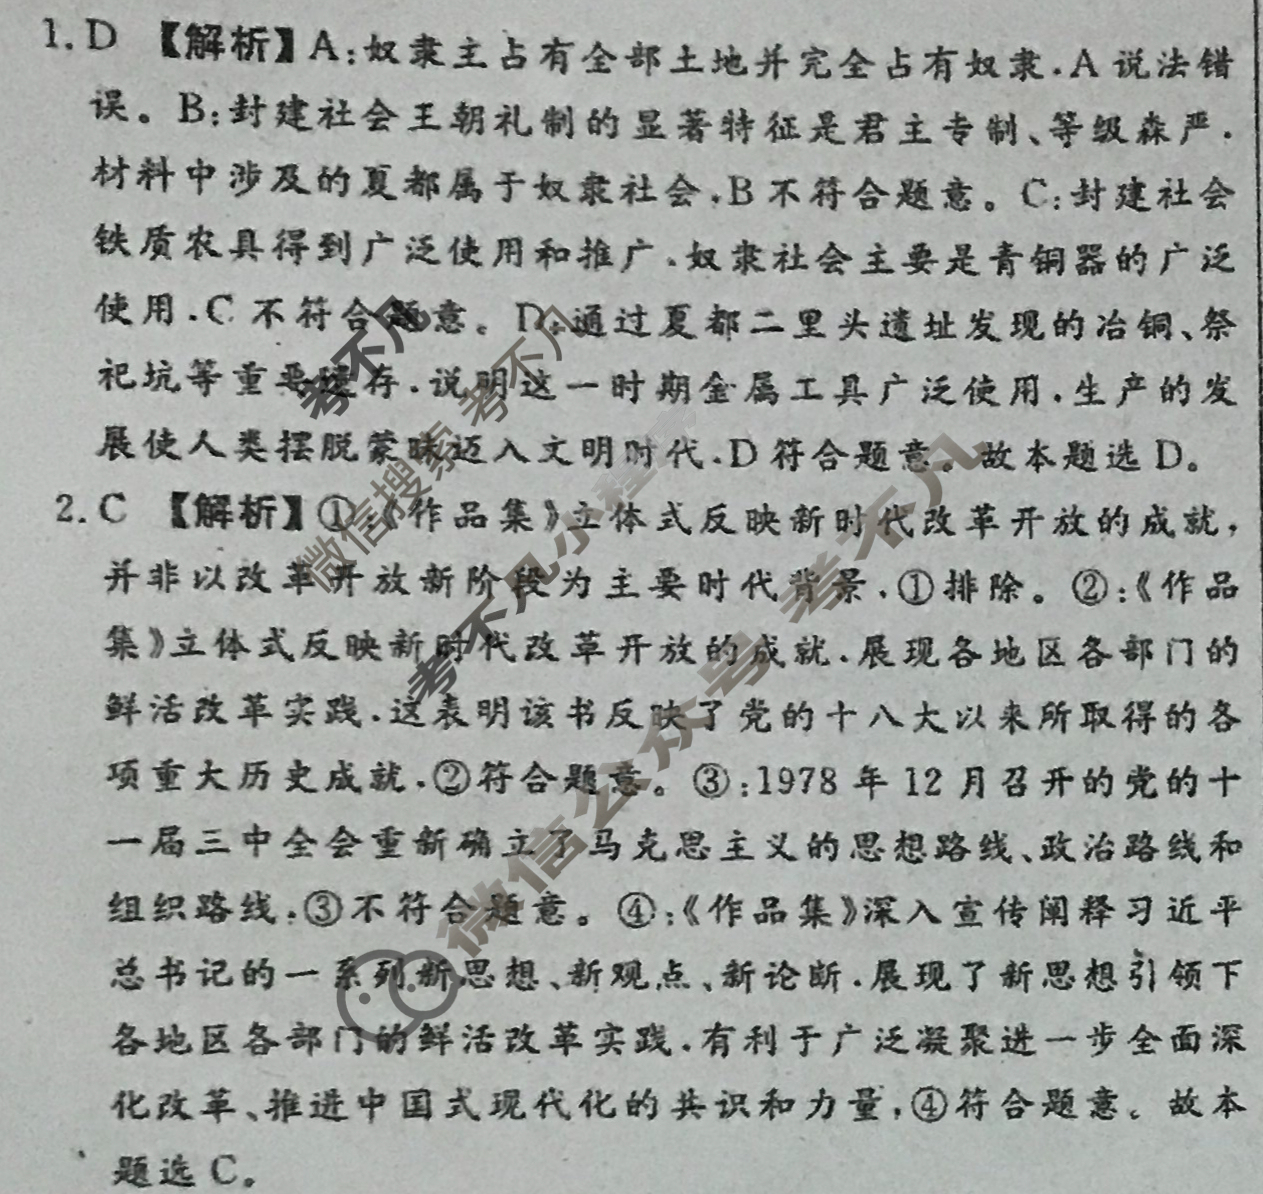 1. D 【解析】A:奴隶主占有全部土地并完全占有奴隶,A说法错
误。B:封建社会王朝礼制的显著特征是君主专制、等级森严,
材料中涉及的夏都属于奴隶社会,B不符合题意。C:封建社会
铁质农具得到广泛使用和推广,奴隶社会主要是青铜器的广泛
使用,C不符合题意。D:通过夏都二里头遗址发现的冶铜、祭
祀坑等重要遗存,说明这一时期金属工具广泛使用,生产的发
展使人类摆脱蒙昧迈入文明时代,D符合题意。故本题选D。
2. C 【解析】①:《作品集》立体式反映新时代改革开放的成就,
并非以改革开放新阶段为主要时代背景,①排除。②:《作品
集》立体式反映新时代改革开放的成就,展现各地区各部门的
鲜活改革实践,这表明该书反映了党的十八大以来所取得的各
项重大历史成就,②符合题意。③:1978年12月召开的党的十
一届三中全会重新确立了马克思主义的思想路线、政治路线和
组织路线,③不符合题意。④:《作品集》深入宣传阐释习近平
总书记的一系列新思想、新观点、新论断,展现了新思想引领下
各地区各部门的鲜活改革实践,有利于广泛凝聚进一步全面深
化改革、推进中国式现代化的共识和力量,④符合题意。故本
题选C。
考不凡
微信搜索 考不凡
考不凡小程序
微信公众号 考不凡